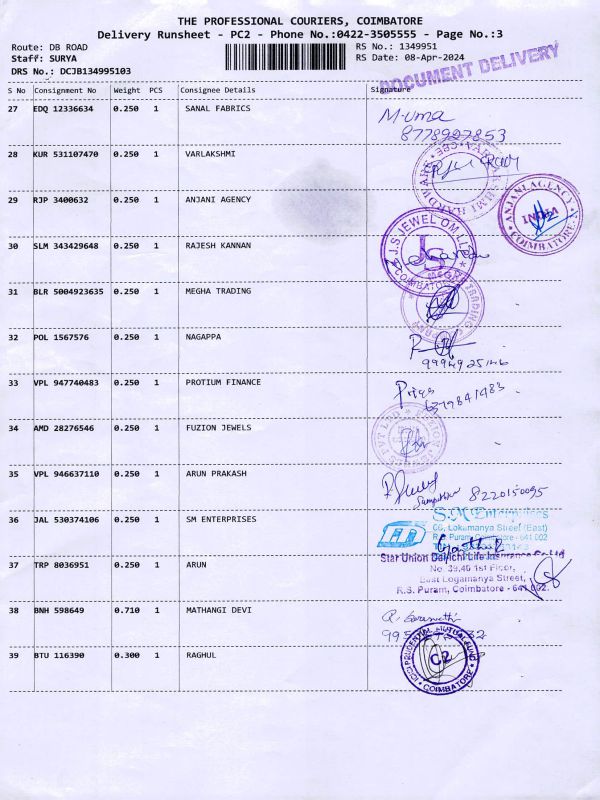 THE PROFESSIONAL COURIERS, COIMBATORE
Delivery Runsheet - PC2 - Phone No.:0422-3505555 - Page No.:3
Route: DB ROAD
RS No.: 1349951
Staff: SURYA
RS Date: 08-Apr-2024
DRS No.: DCJB134995103
DOCUMENT DELIVERY
S No Consignment No Weight PCS Consignee Details Signature
27 EDQ 12336634 0.250 1 SANAL FABRICS
M. Uma
8778927853
28 KUR 531107470 0.250 1 VARLAKSHMI
29 RJP 3400632 0.250 1 ANJANI AGENCY
ANJANI AGENCY
INDIA
COIMBATORE
30 SLM 343429648 0.250 1 RAJESH KANNAN
J.S JEWEL
JS
31 BLR 5004923635 0.250 1 MEGHA TRADING
32 POL 1567576 0.250 1 NAGAPPA
33 VPL 947740483 0.250 1 PROTIUM FINANCE
Priya
6379841483
34 AMD 28276546 0.250 1 FUZION JEWELS
35 VPL 946637110 0.250 1 ARUN PRAKASH
8220150095
36 JAL 530374106 0.250 1 SM ENTERPRISES
S.M Enterprises
60, Lokamanya Street (East)
37 TRP 8036951 0.250 1 ARUN
Star Union Dai-ichi Life Insurance
No. 39,40 1st Floor,
East Logamanya Street,
R.S. Puram, Coimbatore - 641 002.
38 BNH 598649 0.710 1 MATHANGI DEVI
39 BTU 116390 0.300 1 RAGHUL
ICICI PRUDENTIAL MUTUAL FUND
C2
COIMBATORE